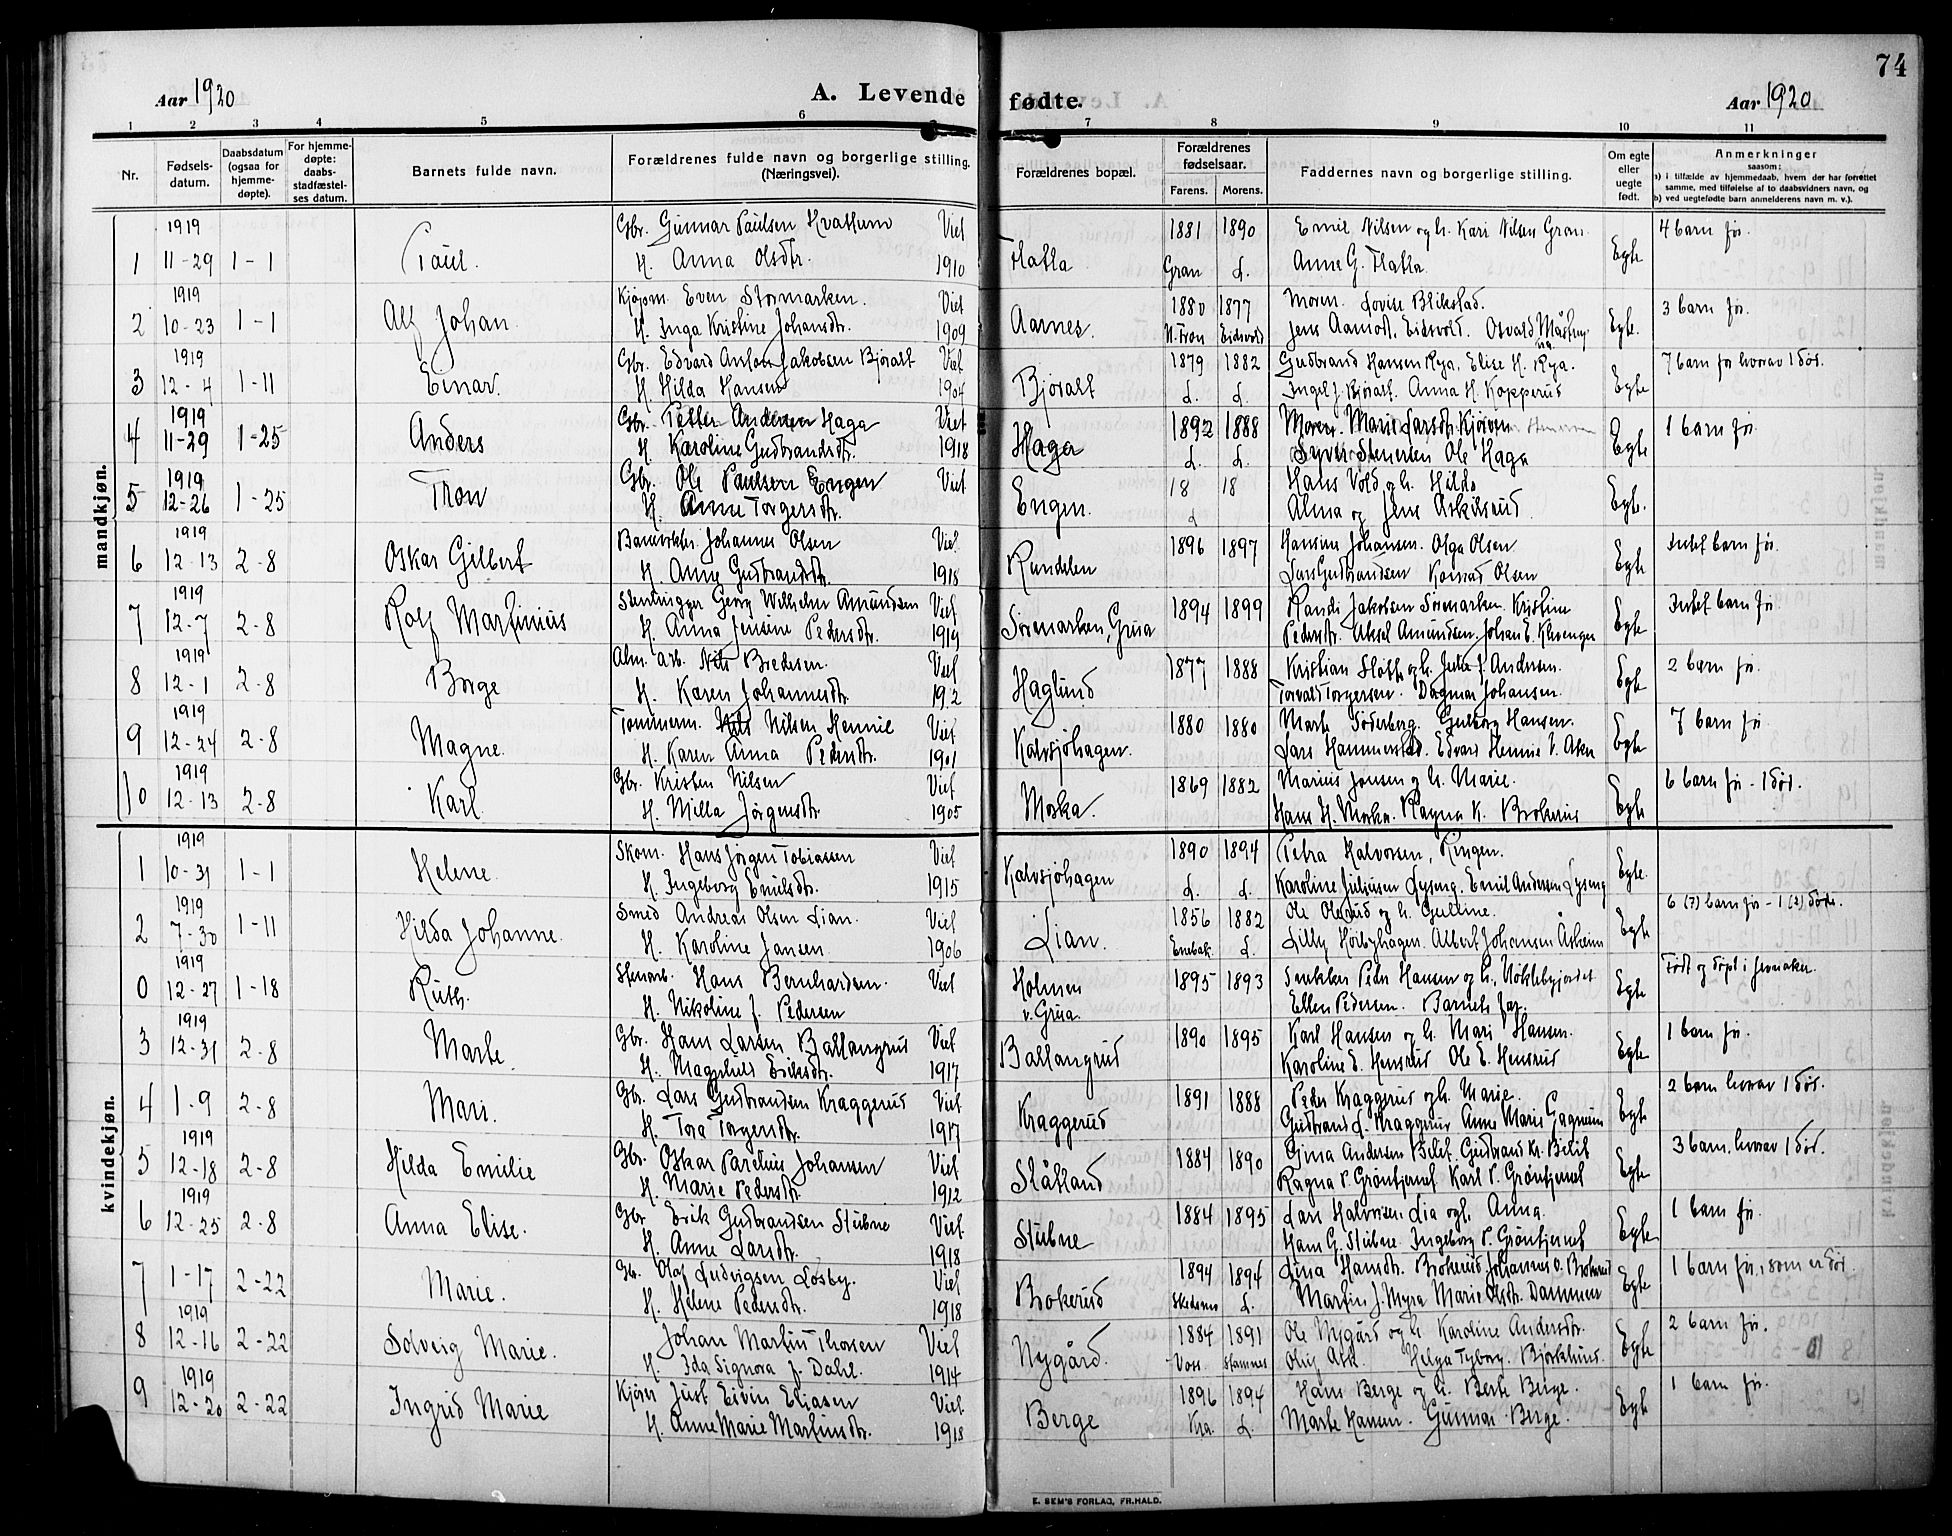 74
Aar 1920 A. Levende fødte. Aar 1920
1 2 3 4 5 6 7 8 9 10 11
Nr. Fødsels-datum. Daabsdatum (ogsaa for hjemme-døpte). For hjemme-døpte: daabs-stadfæstel-ses datum. Barnets fulde navn. Forældrenes fulde navn og borgerlige stilling. (Næringsvei). Forældrenes bopæl. Forældrenes fødselsaar. Farens. Morens. Faddernes navn og borgerlige stilling. Om egte eller uegte født. Anmerkninger saasom: a) i tilfælde av hjemmedaab, hvem der har forrettet samme, med tilføielse af to daabsvidners navn, og b) ved uegtefødte barn anmelderens navn m. v.).
mandkjøn.
1919 Gbr. Gunnar Paulsen Hvattum Viet 1881 1890 Emil Nilsen og h. Kari Nilsen Gran 4 barn før.
1 11-29 1-1 Paul. H. Anna Olsdtr. 1910 Flatla Gran L. Anne G. Flatla. Egte
1919 Kjøpm. Even Stormarken. Viet 1880 1877 Moren. Lovise Blikstad. 3 barn før.
2 10-23 1-1 Alf Johan. H. Inga Kristine Johansdtr. 1909 Aarnes. N. Fron Eidsvold Jens Aamodt, Eidsvold. Osvald Egte.
1919 Gbr. Edvard Anton Jakobsen Bjøralt Viet 1879 1882 Gudbrand Hansen Rya, Elise H. Rya. 7 barn før hvorav 1 død.
3 12-4 1-11 Einar. H. Hilda Hansen 1904 Bjøralt L. L. Ingel J. Bjøralt. Anna H. Kopperud Egte
1919 Gbr. Petter Andersen Haga Viet 1892 1888 Moren. Marie Larsdtr. Kjørven 1 barn før.
4 11-29 1-25 Anders H. Karoline Gudbrandsdtr. 1918 Haga L. L. Syver Stenersen Ole Haga Egte
1919 Gbr. Ole Paulsen Engen Viet 18 18 Hans Vold og h. Hilda
5 12-26 1-25 Tron H. Anne Torgersdtr. Engen. L Alma og Jens Askilsrud. Egte.
1919 Banevokter Johannes Olsen Viet 1896 1897 Hansine Johansen. Olga Olsen Intet barn før.
6 12-13 2-8 Oskar Gilbert H. Anne Gudbrandsdtr. 1918 Rundelen Lars Gudbrandsen Konrad Olsen Egte
1919 Stenhugger Georg Wilhelm Amundsen Viet 1894 1899 Randi Jakobsen Sørmarken. Kristine Intet barn før.
7 12-7 2-8 Rolf Martinius H. Anna Jensine Pedersdtr. 1919 Sørmarken, Grua Pedersdtr. Aksel Amundsen. Johan E. Klevenger Egte
1919 Alm. arb. Nils Bredesen. Viet 1877 1888 Kristian Slåtto og h. Jutta f. Andersen. 2 barn før.
8 12-1 2-8 Borge H. Karen Johannesdtr. 1912 Haglund Torvald Torgersen. Dagmar Johansen. Egte
1919 Tømmerm. Nils Nilsen Hennie Viet 1880 1880 Marte Söderberg. Gulborg Hansen. 7 barn før.
9 12-24 2-8 Magne. H. Karen Anna Pedersdtr. 1901 Kalvsjøhagen. Lars Hammerstad. Edvard Hennie V. Aker Egte
1919 Gbr. Kristen Nilsen Viet 1869 1882 Marius Jensen og h. Marie. 6 barn før - 1 død.
10 12-13 2-8 Karl. H. Milla Jørgensdtr. 1905 Morka. Hans H. Morka. Ragna K. Brokerud Egte
kvindekjøn.
1919 Skom. Hans Jørgen Tobiassen Viet 1890 1894 Petra Halvorsen, Ringen.
1 10-31 1-1 Helene. H. Ingeborg Emilsdtr. 1915 Kalvsjøhagen L. L. Karoline Juliusen Lyseng. Emil Andersen Lyseng Egte.
1919 Smed Andreas Olsen Lian. Viet 1856 1882 Ole Olerud og h. Gulline. 6 (7) barn før - 1 (2) døde.
2 7-30 1-11 Hilda Johanne. H. Karoline Jansen. 1906 Lian. Enebak. L. Lilly Høibyhagen. Albert Johansen Åsheim Egte
1919 Stenarb. Hans Bernhardsen. Viet Holmen 1895 1893 Snekker Peder Hansen og h., Nøklebyjordet Født og døpt i Jevnaker.
0 12-27 1-18 Ruth. H. Nikoline f. Pedersen v. Grua. Ellen Pedersen. Barnets far. Egte
1919 Gbr. Hans Larsen Ballangrud Viet 1890 1895 Karl Hansen og h. Mari Hansen. 1 barn før.
3 12-31 2-8 Marte H. Magnhild Eriksdtr. 1917 Ballangrud Karoline E. Hensrud Ole E. Hensrud Egte
Gbr. Lars Gudbrandsen Kraggerud Viet 1891 1888 Peder Kraggerud og h. Marie. 2 barn hvorav 1 død.
4 1-9 2-8 Mari. H. Tora Torgersdtr. 1917 Kraggerud Gudbrand L. Kraggerud Anne Marie Gagnum Egte
1919 Gbr. Oskar Parelius Johansen Viet 1884 1890 Gina Andersen Bilit. Gudbrand Kr. Bilit 3 barn, hvorav 1 død.
5 12-18 2-8 Hilda Emilie H. Marie Pedersdtr. 1912 Slåtland Ragna P. Grøntjernet Karl P. Grøntjernet Egte
1919 Gbr Erik Gudbrandsen Stubne Viet 1884 1895 Lars Halvorsen Lia og h. Anna. 1 barn før.
6 12-25 2-8 Anna Elise. H. Anne Larsdtr. 1918 Stubne Hans G. Stubne. Ingeborg P. Grøntjernet Egte
Gb. Olaf Ludvigsen Losby. Viet 1894 1894 Lina Hansdtr. Brokerud Johannes O. Brokerud 1 barn før, som er død.
7 1-17 2-22 Marie. H. Helene Pedersdtr. 1918 Brokerud Skedsmo L. Martin J. Myra Marie Olsdtr. Dammen Egte
1919 Johan Martin Thorsen Viet 1884 1891 Ole Nygård og h. Karoline Andersdtr. 2 barn før.
8 12-16 2-22 Solveig Marie. H. Ida Signora f. Dahl. 1914 Nygård. Voss. Stamnes Oliv Ask. Helga Tyborg. Bjørklund. Egte
1919 Kjører Just Eivin Eliasen Viet 1896 1894 Hans Berge og h. Berte Berge. 1 barn før.
9 12-20 2-22 Ingrid Marie H. Anne Marie Martinsdtr. 1918 Berge Kra. L. Marte Hansen. Gunnar Berge. Egte
E. SEM'S FORLAG, FR.HALD.